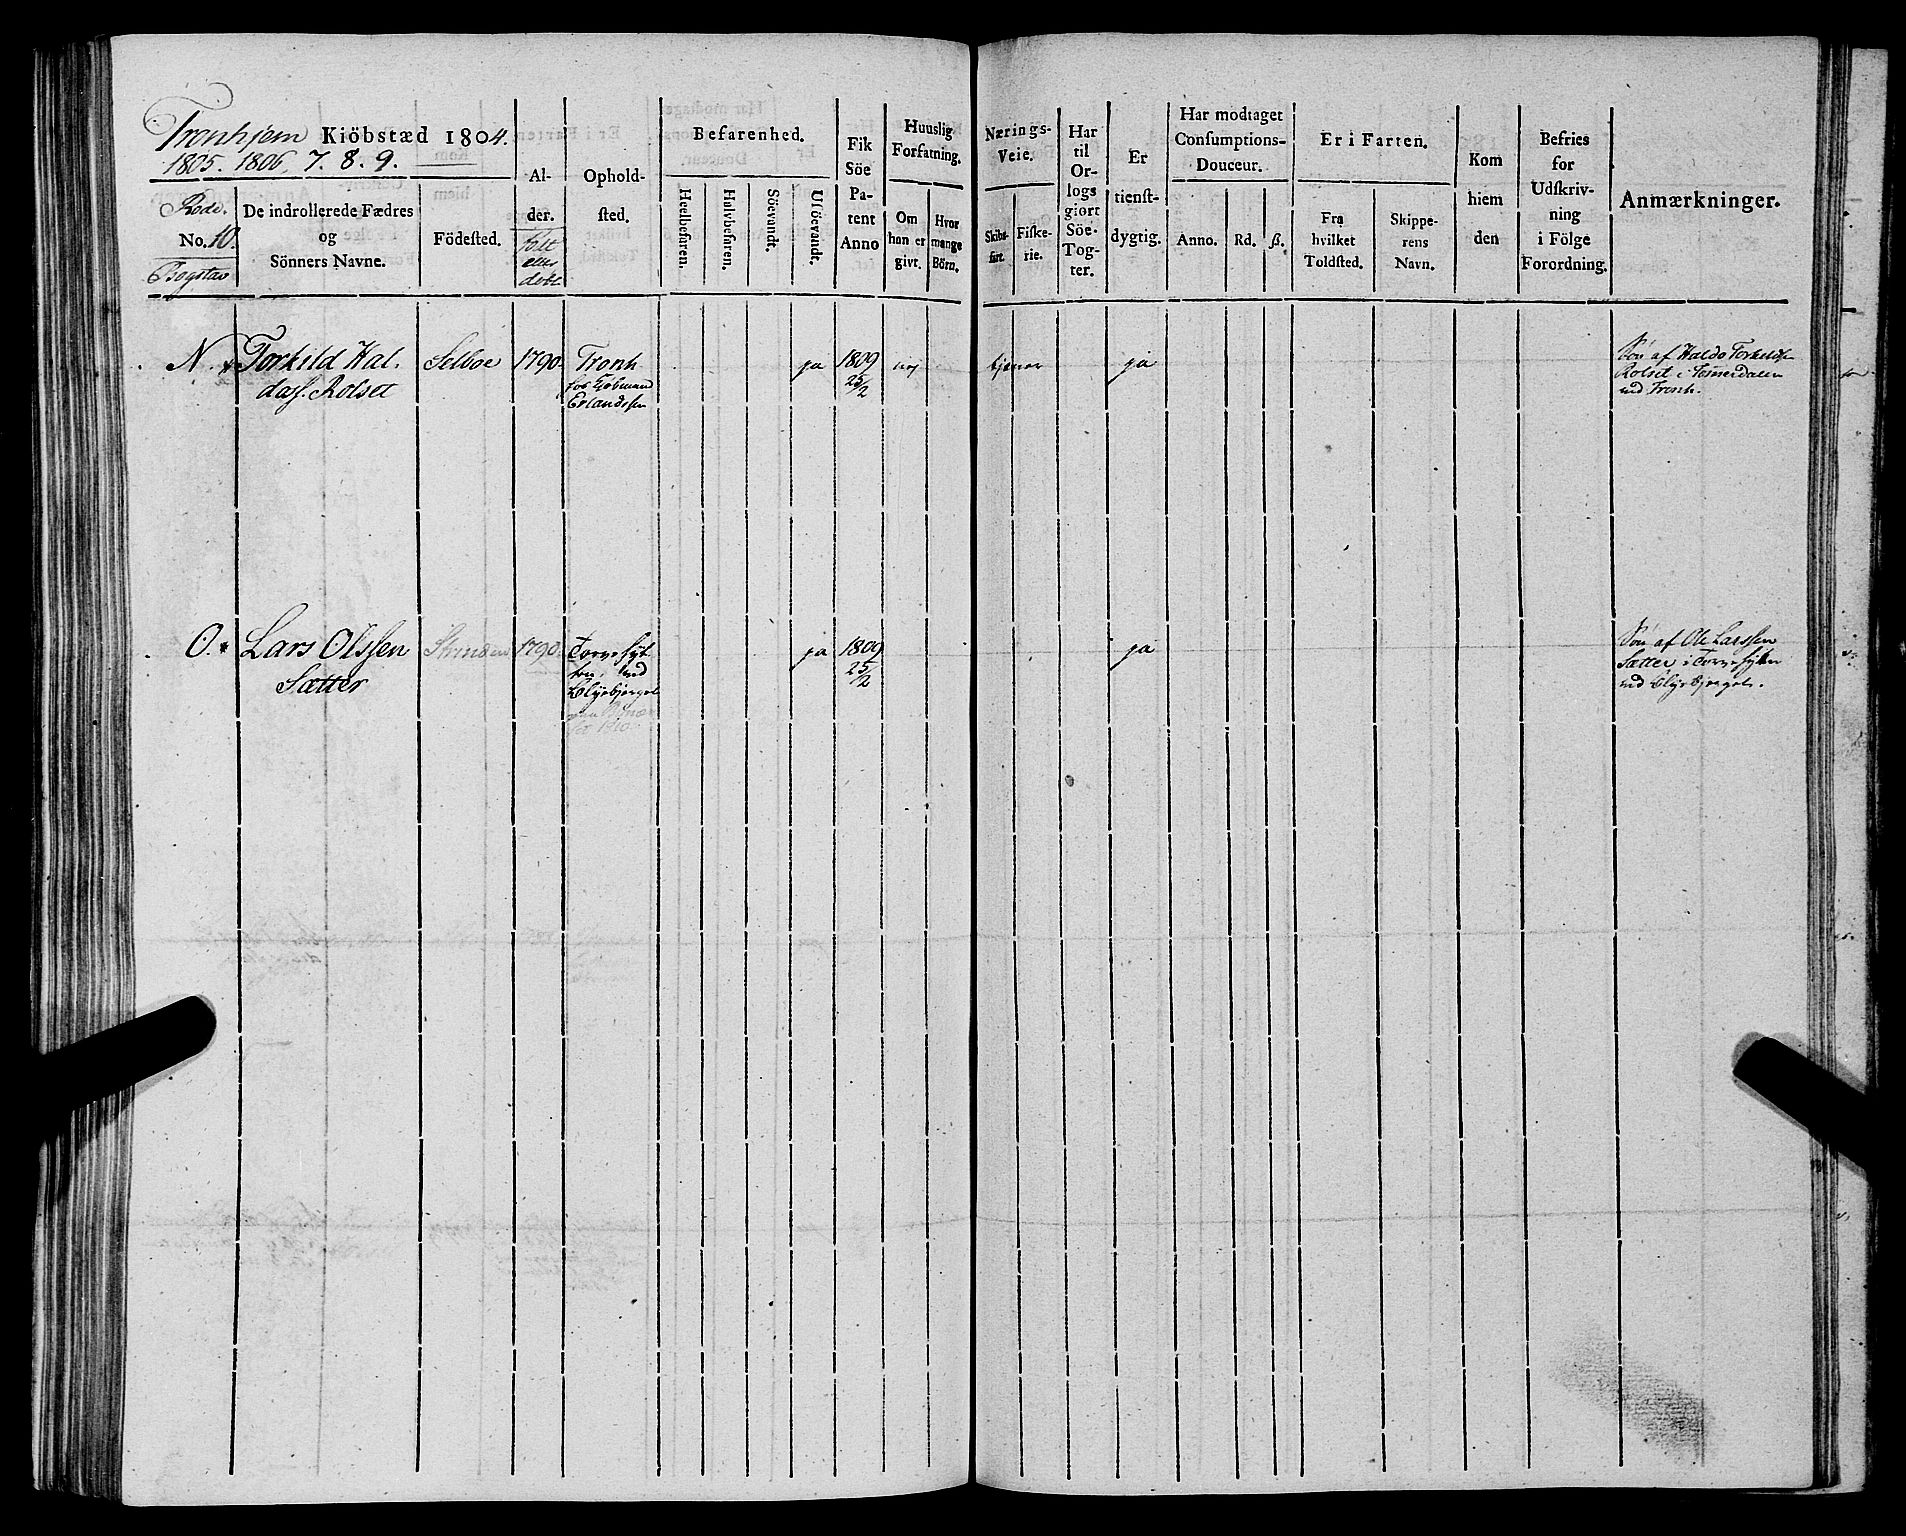 Tronhjem Kiöbstæd 1804.
1805. 1806. 7. 8. 9.
Rode.
No. 10.
Bogstav
De indrollerede Fædres
og
Sönners Navne.
Födested.
Al-
der.
födt
eller
döbt
Ophold-
sted.
Befarenhed.
Heelbefaren.
Halvbefaren.
Söevandt.
Usöevandt.
Fik
Söe
Pa-
tent
Anno
Huuslig
Forfatning.
Om
han er
givt.
Hvor
mange
Börn.
Nærings-
Veie.
Skibs-
fart.
Fiske-
rie.
Har
til
Or-
logs
giort
Söe-
Tog-
ter.
Er
tienst-
dygtig.
Har modtaget
Consumptions-
Douceur.
Anno.
Rd.
ß.
Er i Farten.
Fra
hvilket
Toldsted.
Skippe-
rens
Navn.
Kom
hiem
den
Befries
for
Udskriv-
ning
i Fölge
Forordning.
Anmærkninger.
N. Torkild Hal-
das. Rolset
Selboe
1790.
Tronh
hos Kiöbmand
Erlandssen
ja
1809
25/2
nej
tjener
ja
Sön af Haldo Torkilds.
Rolset i
ved Tronh.
O. Lars Olssen
Sætter
Strinden
1790.
Torvesyt-
ten, ved
Blysbjerget
1810.
ja
1809
25/2
ja
Sön af Ole Larssen
Sætter i Torvesytten
ved Blysbjerget.